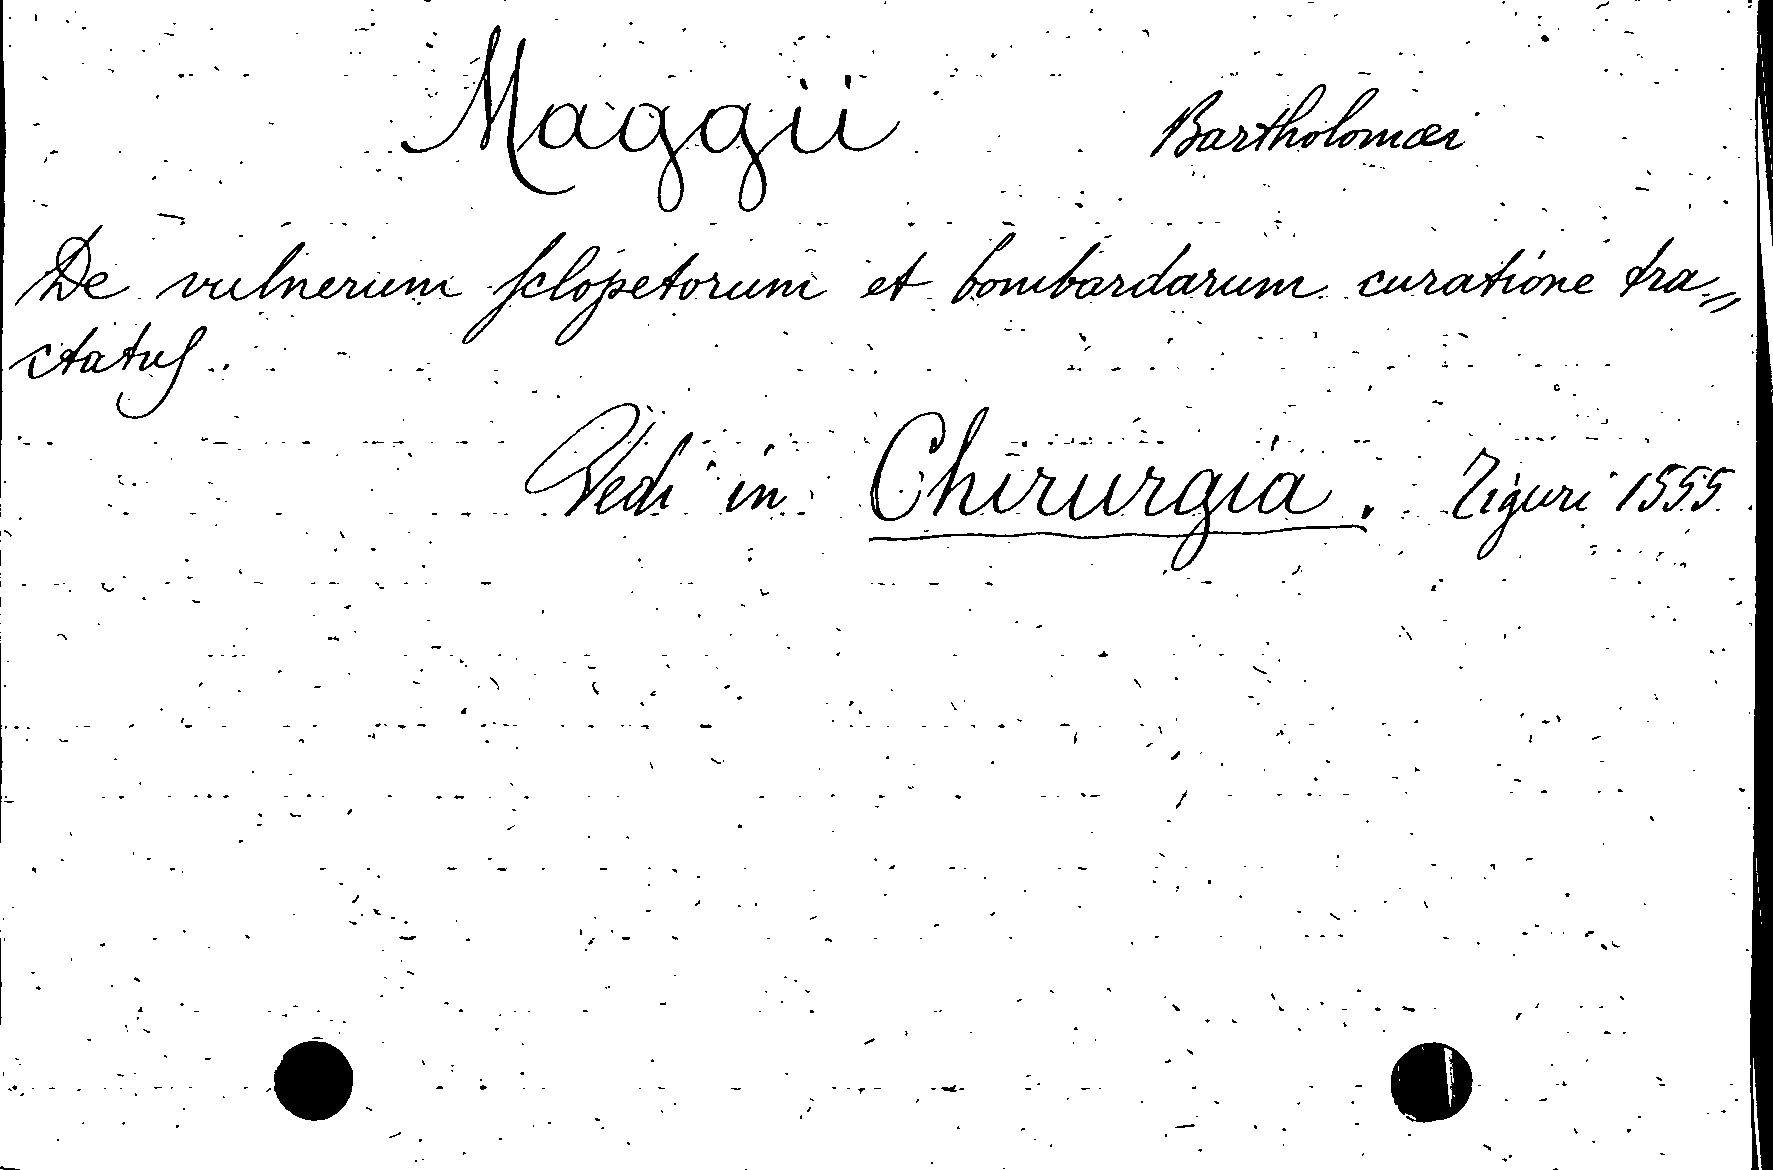 Maggii Bartholomæi
De vulnerum ſclopetorum et bombardarum curatione tra„
ctatuſ.
Vedi in Chirurgia. Tiguri 1555